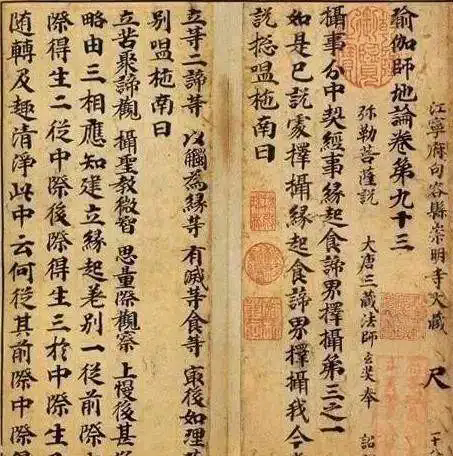 江寧府句容縣崇明寺大藏 尺
瑜伽師地論卷第九十三
弥勒菩薩説 大唐三藏法師玄奘奉 詔
攝事分中契經事緣起食諦界擇攝第三之一
如是已説處擇攝緣起食諦界擇攝我今
説揔嗢柁南曰
立等二諦等 以觸為緣等 有滅等食等 㝡後如理
别嗢柁南曰
立苦聚諦觀 攝聖教微智 思量際觀察 上慢後甚
略由三相應知建立緣起差别一從前際
際得生二從中際後際得生三於中際生
随轉及趣清淨此中云何從其前際中際